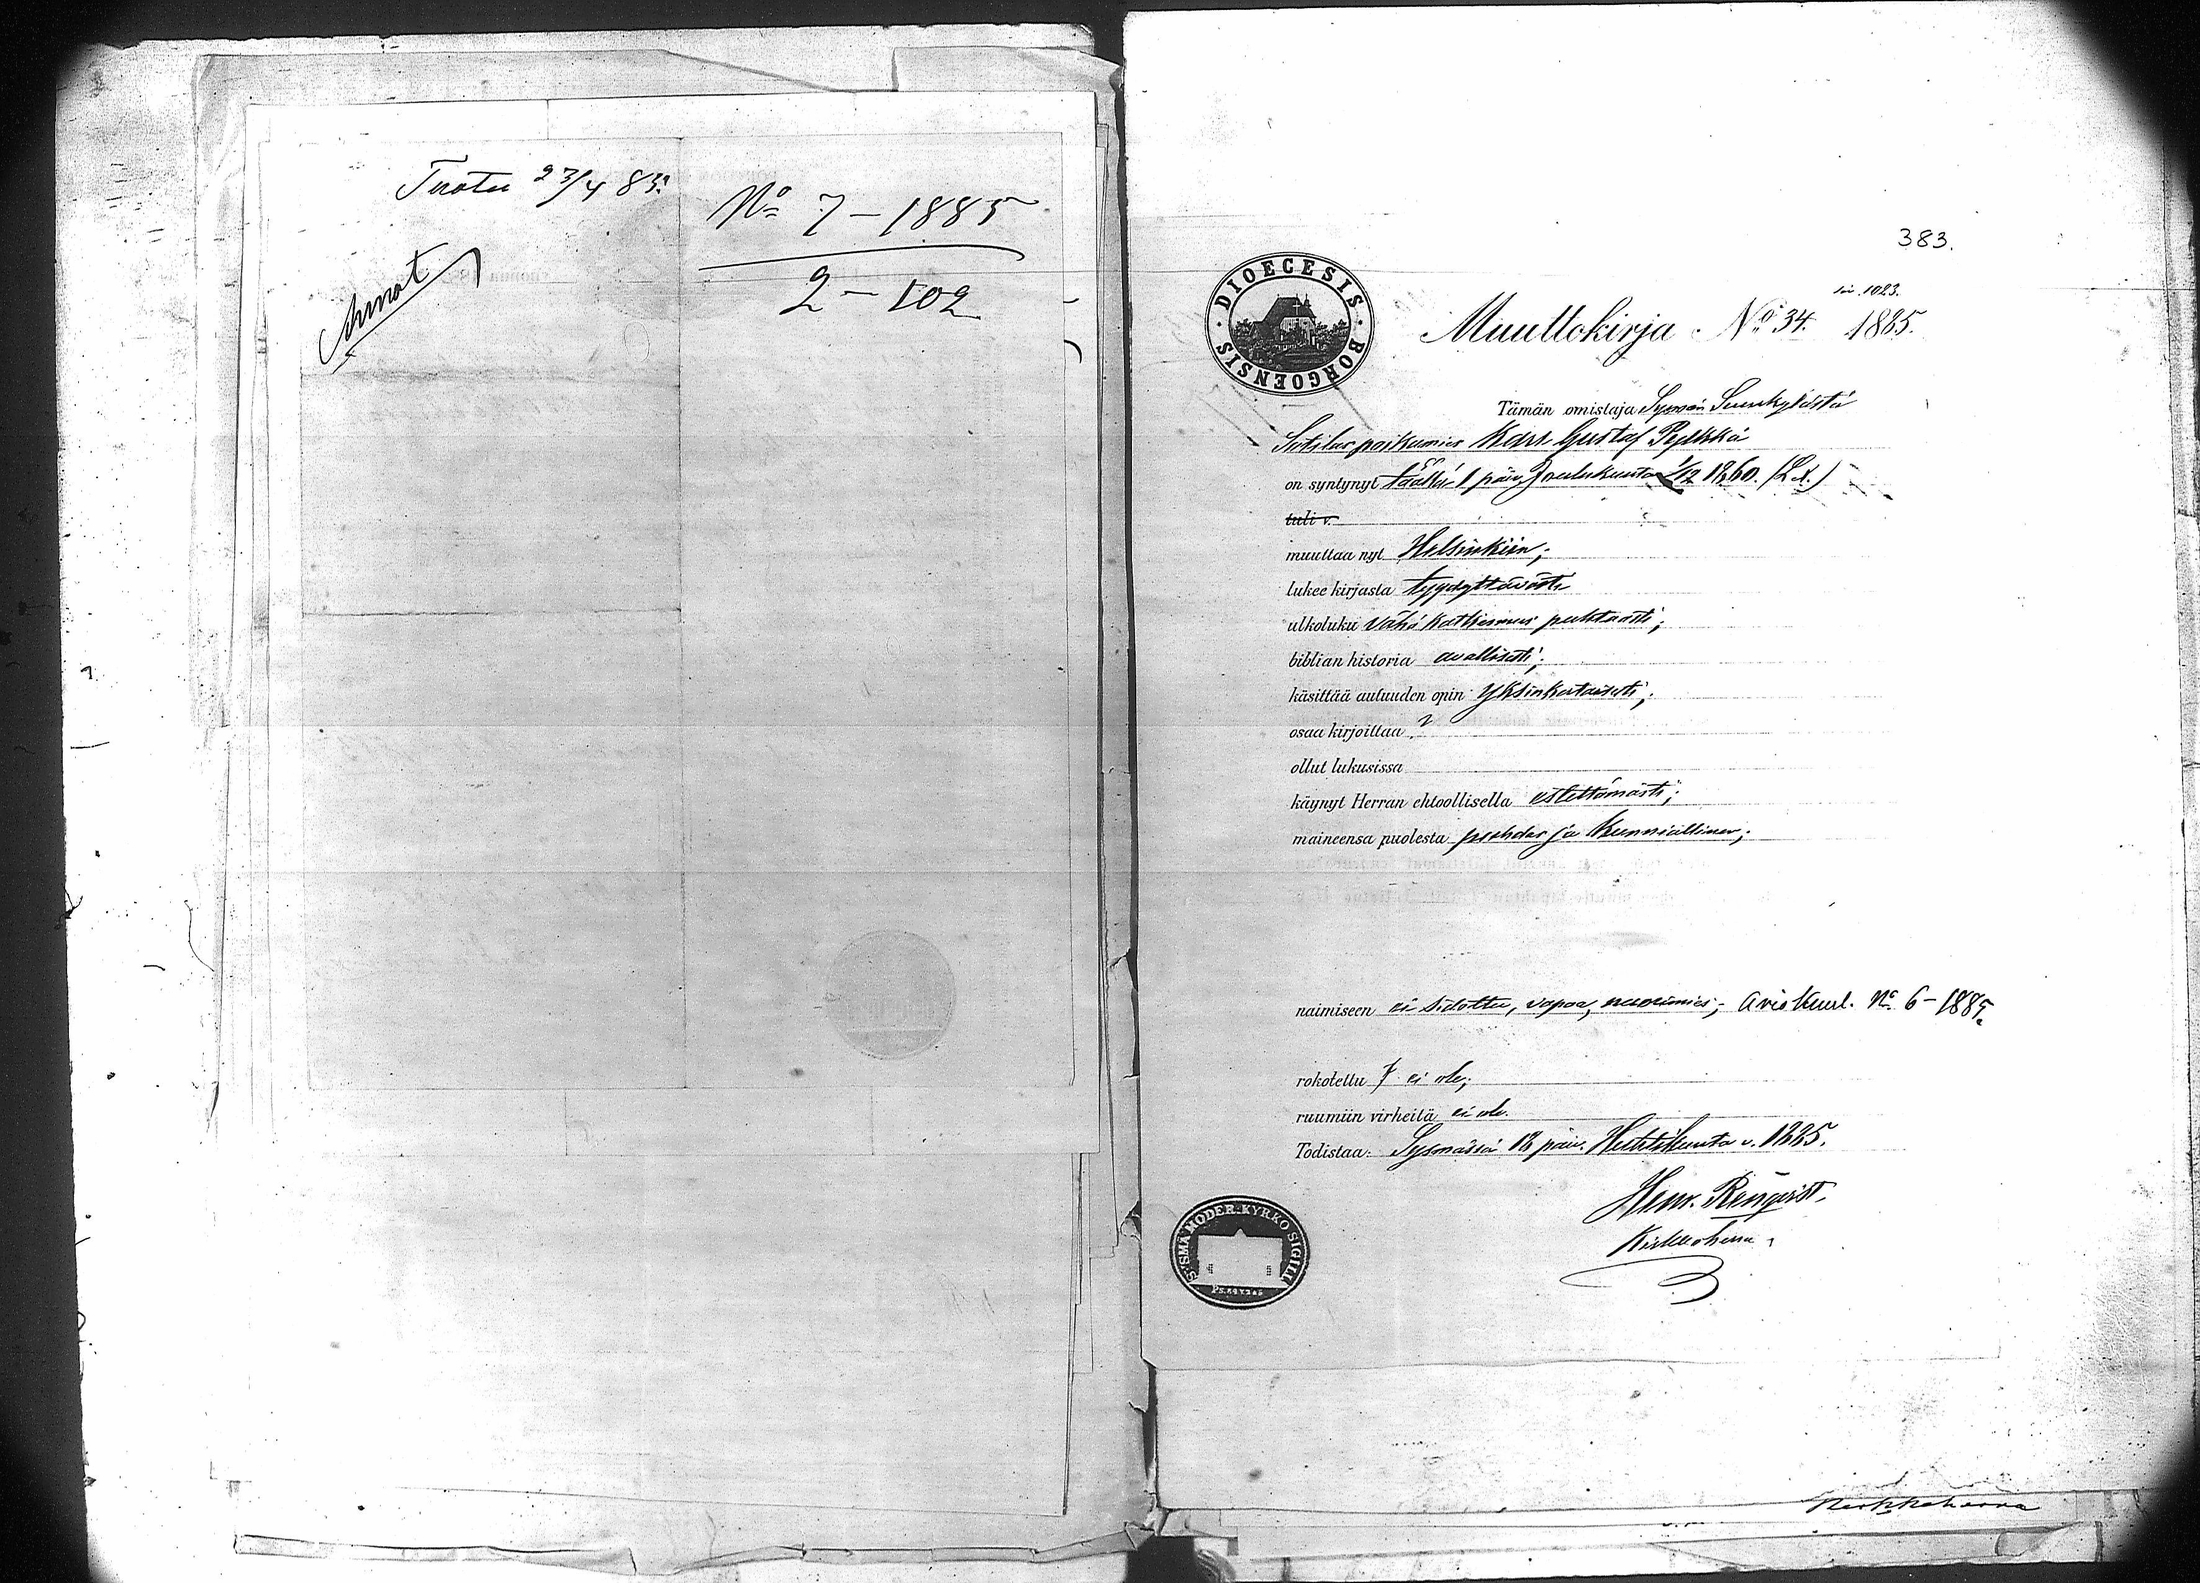 Tuotu 23/4 85.
No 7 – 1885
2 – 102
383.
DIOECESIS BORGOENSIS
siv. 1023.
Muuttokirja No 34. 1885.
Tämän omistaja Sysmän Suurkylästä
poikamies Karl Gustaf Pylkkä
on syntynyt täällä 1 päiv. Joulukuuta 1/12 1860.
tuli v.
muuttaa nyt Helsinkiin;
lukee kirjasta tyydyttävästi
ulkoluku vähä katkismus puhtaasti;
biblian historia avallisesti;
käsittää autuuden opin yksinkertaisesti;
osaa kirjoittaa ?
ollut lukusissa
käynyt Herran ehtoollisella estettömästi;
maineensa puolesta puhdas ja kunniallinen;
naimiseen ei sidottu, vapaa, nuorimies; Aviokuul. No 6 – 1885.
rokotettu ? ei ole;
ruumiin virheitä ei ole.
Todistaa: Sysmässä 18 päiv. Huhtikuuta v. 1885.
Henr. Renqvist.
Kirkkoherra.
SYSMÄ MODER-KYRKO SIGILL
Kirkkoherra